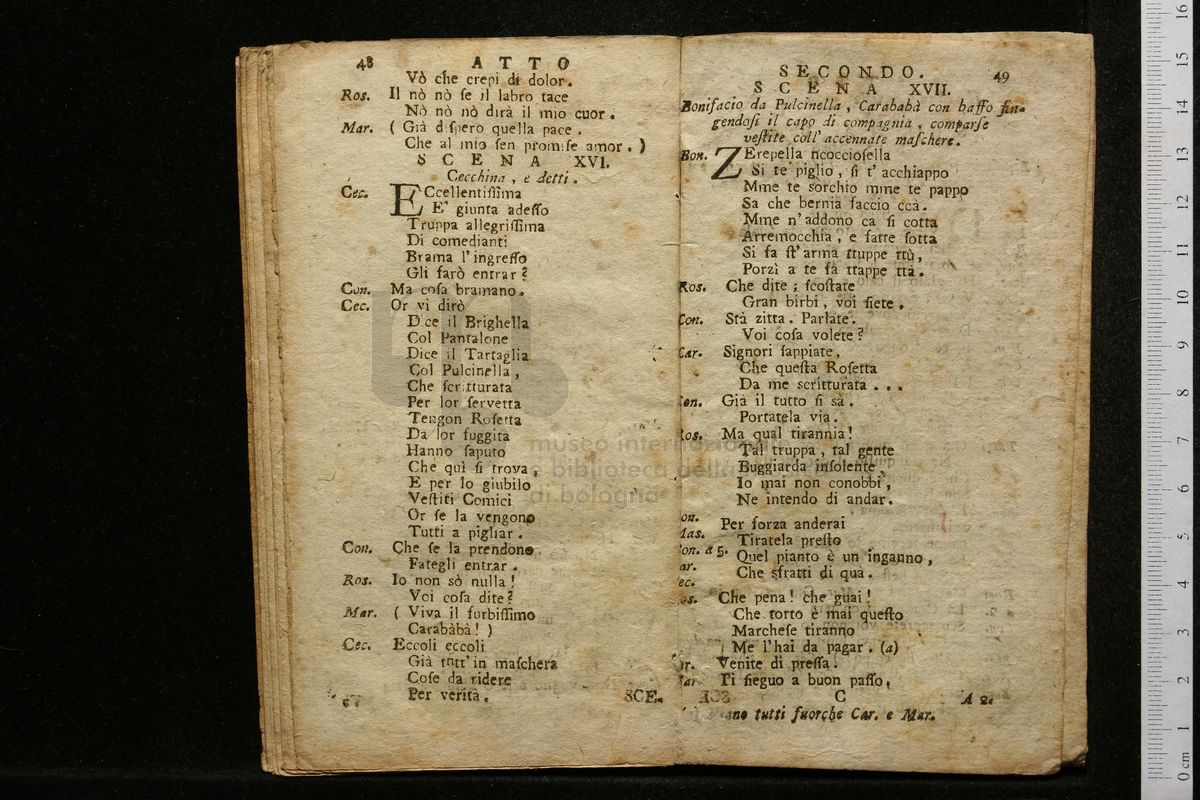 48 ATTO
Vò che crepi di dolor.
Ros. Il nò nò se il labro tace
Nò nò nò dirà il mio cuor.
Mar. ( Già dispero quella pace.
Che al mio sen promise amor. )
SCENA XVI.
Cecchina, e detti.
Cec. ECcellentissima
E' giunta adesso
Truppa allegrissima
Di comedianti
Brama l'ingresso
Gli farò entrar?
Con. Ma cosa bramano.
Cec. Or vi dirò
Dice il Brighella
Col Pantalone
Dice il Tartaglia
Col Pulcinella,
Che scritturata
Per lor servetta
Tengon Rosetta
Da lor fuggita
Hanno saputo
Che quì si trova,
E per lo giubilo
Vestiti Comici
Or se la vengono
Tutti a pigliar.
Con. Che se la prendono
Fategli entrar.
Ros. Io non sò nulla!
Voi cosa dite?
Mar. ( Viva il furbissimo
Carabàbà! )
Cec. Eccoli eccoli
Già tutt'in maschera
Cose da ridere
Per verità.
SCE.
SECONDO. 49
SCENA XVII.
Bonifacio da Pulcinella, Carababà con baffo fin-
gendosi il capo di compagnia, comparse
vestite coll'accennate maschere.
Bon. ZErepella ncocciosella
Si te piglio, si t'acchiappo
Mme te sorchio mme te pappo
Sa che bernia faccio ccà.
Mme n'addono ca si cotta
Arremocchia, e fatte sotta
Si fa st'arma ttuppe ttù,
Porzì a te fà ttappe ttà.
Ros. Che dite; scostate
Gran birbi, voi siete.
Con. Stà zitta. Parlate.
Voi cosa volete?
Car. Signori sappiate,
Che questa Rosetta
Da me scritturata...
Con. Già il tutto si sà.
Portatela via.
Ros. Ma qual tirannia!
Tal truppa, tal gente
Buggiarda insolente
Io mai non conobbi,
Ne intendo di andar.
on. Per forza anderai
Mas. Tiratela presto
on. a 5. Quel pianto è un inganno,
ar. Che sfratti di quà.
ec.
os. Che pena! che guai!
Che torto è mai questo
Marchese tiranno
Me l'hai da pagar. (a)
ar. Venite di pressa.
Mar. Ti sieguo a buon passo,
C A 2.
ano tutti fuorche Car. e Mar.
museo internazionale
e biblioteca della
di bologna
0 cm 1 2 3 4 5 6 7 8 9 10 11 12 13 14 15 16